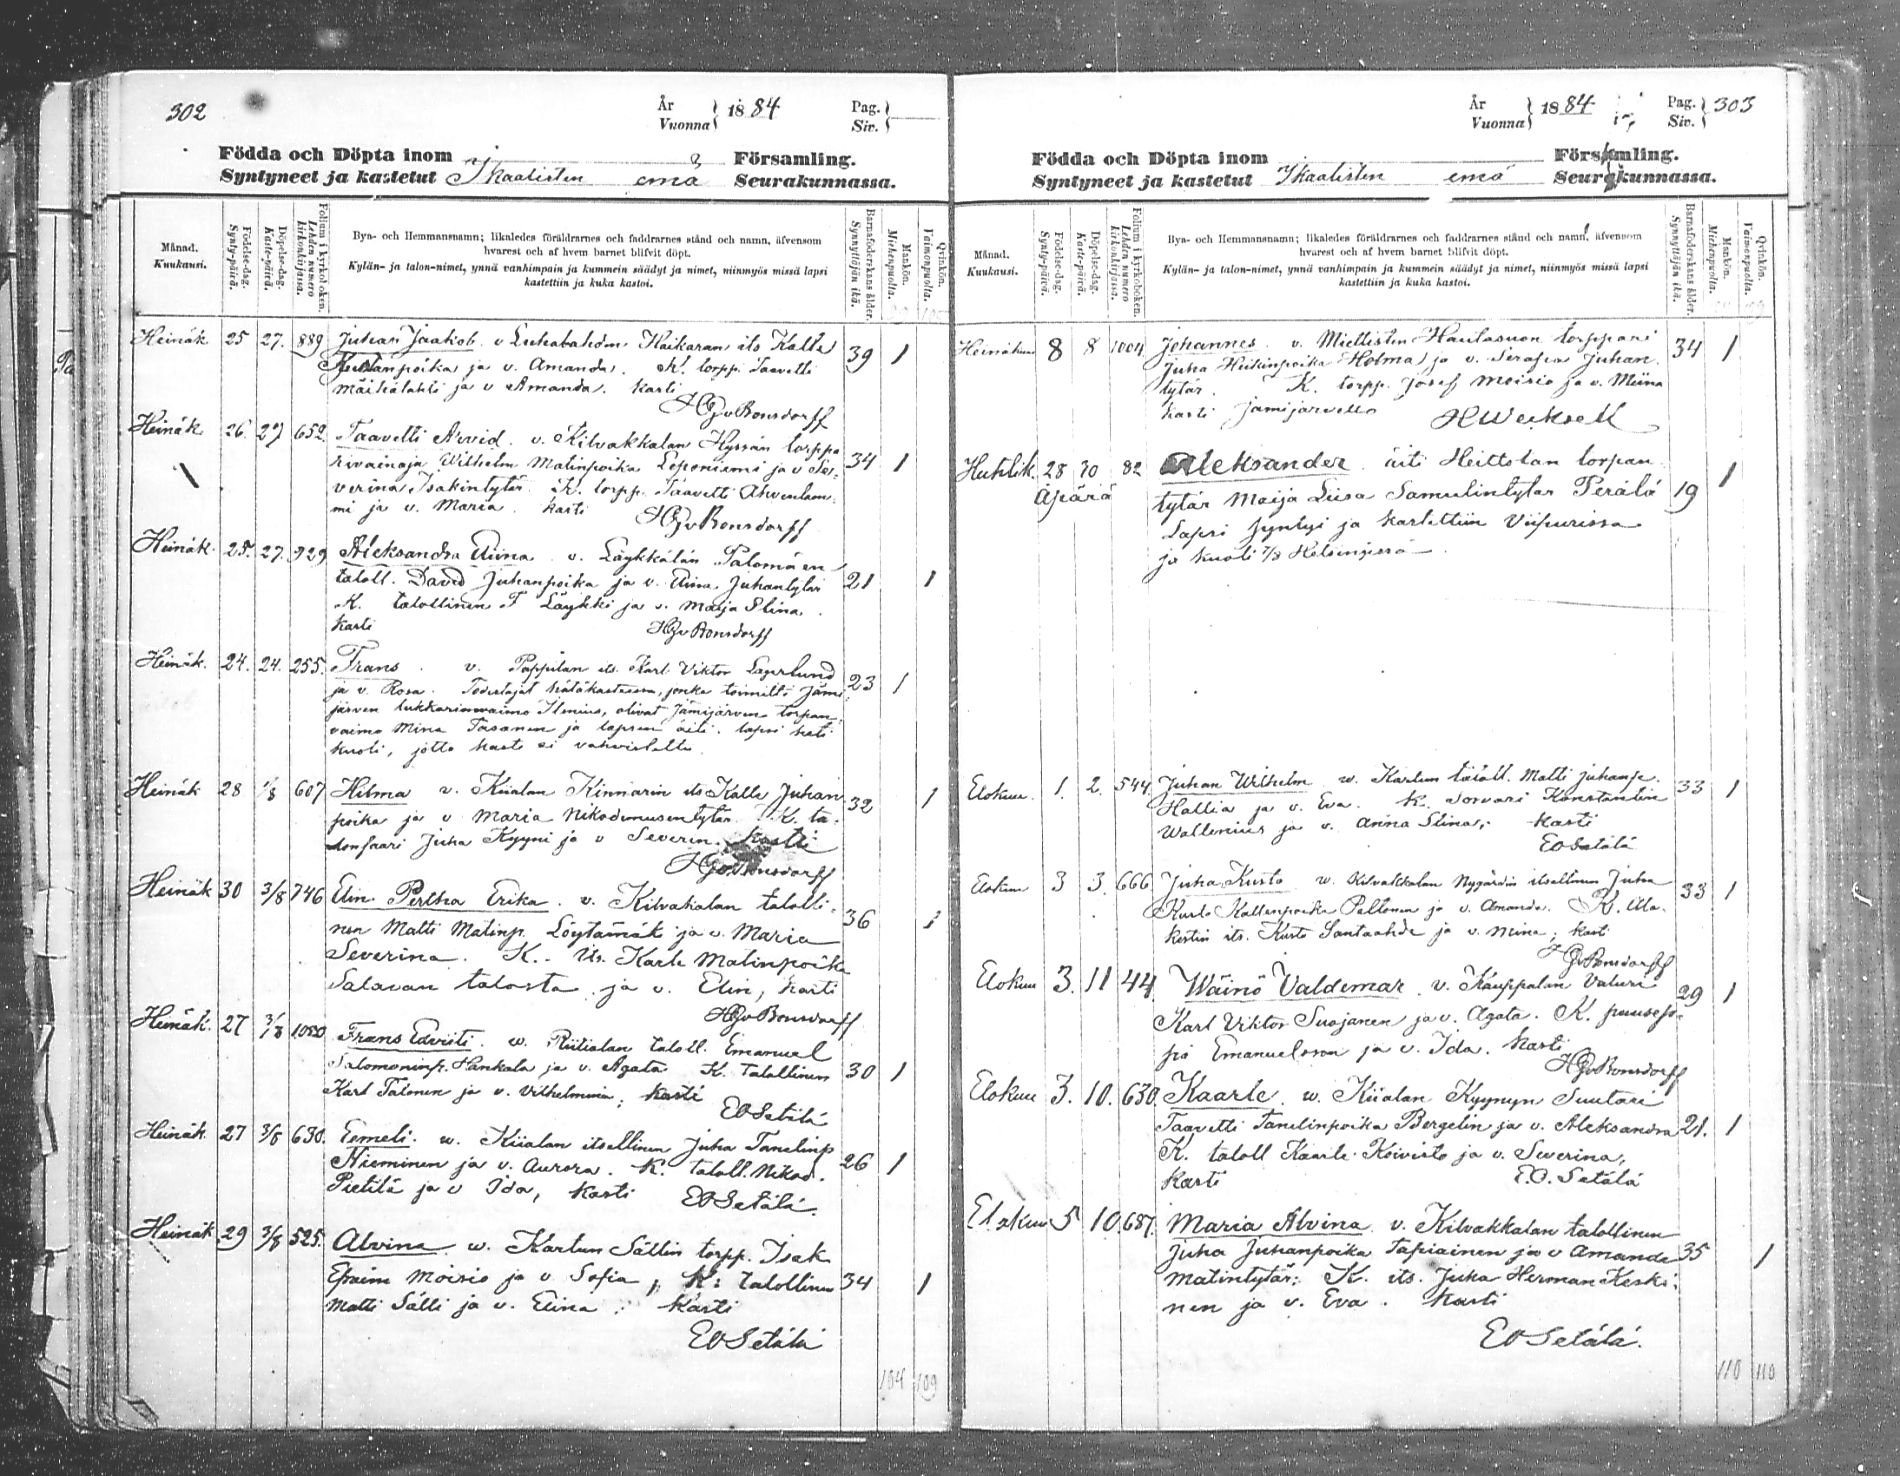 302
År
Vuonna } 1884
Pag.
Siv. }
Födda och Döpta inom Församling.
Syntyneet ja kastetut Ikaalisten emä Seurakunnassa.
Månad.
Kuukausi.
Födelse-dag.
Synty-päivä.
Döpelse-dag.
Kaste-päivä.
Folium i kyrkoboken.
Lehden numero kirkonkirjassa.
Bya- och Hemmansnamn; likaledes föräldrarnes och faddrarnes stånd och namn, äfvensom
hvarest och af hvem barnet blifvit döpt.
Kylän- ja talon-nimet, ynnä vanhimpain ja kummein säädyt ja nimet, niinmyös missä lapsi
kastettiin ja kuka kastoi.
Barnaföderskans ålder.
Synnyttäjän ikä.
Mankön.
Miehenpuolta.
Qvinkön.
Vaimonpuolta.
Heinäk. 25 27. 889 Juhan Jaakob v Luhalahden Haikaran its Kalle 39 1
Juhanpoika ja v. Amanda. K. torpp. Taavetti
Mäihälahti ja v Amanda. kasti
HGvBonsdorff
Heinäk. 26. 27 652. Taavetti Arvid. v. Kilvakkalan Hyssän torppa 34 1
Wilhelm Matinpoika Leponiemi ja v Se-
verina Isakintytär. K. torpp. Taavetti Ahvenlam-
mi ja v. Maria. kasti
HGvBonsdorff
Heinäk. 25. 27. 929 Aleksandra Eiina v. Läykkälän Palomäen 21 1
taloll. David Juhanpoika ja v. Eiina Juhantytär
K. talollinen F Läykki ja v. Maija Stina.
Kasti HGvBonsdorff
Heinäk. 24. 24. 255. Frans. v. Pappilan its. Karl Viktor Lagerlund 23 1
ja v. Rosa. Todistajat hätäkasteessa, jonka toimitti Jämi-
järven lukkarinvaimo Stenius, olivat Jämijärven torpan-
vaimo Mina Tasanen ja lapsen äiti. lapsi heti
kuoli, jotta kaste ei vahvistettu.
Heinäk 28 1/8 607 Hilma v. Kiialan Kinnarin its Kalle Juhan- 32 1
poika ja v Maria Nikodemusentytär. K. ta-
lonpoari Juha Kyyni ja v Severin. kasti
HGvBonsdorff
Heinäk 30 3/8 746 Elin Pertha Erika. v. Kilvakalan talolli- 36 1
nen Matti Matinp. Löytämäk ja v. Maria
Severina. K. Its. Karle Matinpoika
Salavan talosta ja v. Elin, kasti
HGvBonsdorff
Heinäk. 27 3/8 1050 Frans Edvisti. w. Riitialan taloll. Emanuel 30 1
Salomoninp. Hankala ja v. Agata K. talollinen
Karl Talonen ja v. Vilhelmina; kasti
EOSetälä
Heinäk. 27 3/8 630. Eemeli. w. Kiialan itsellinen Juha Tanelinp 26 1
Nieminen ja v. Aurora. K. taloll. Nikod.
Pietilä ja v Ida, kasti EOSetälä.
Heinäk 29 3/8 525. Alvina w. Kartun Sällin torpp. Isak 34 1
Epraim Moisio ja v Sofia; K: talollinen
Matti Sälli ja v. Elina; kasti
EOSetälä
104 109
År
Vuonna } 1884
Pag.
Siv. } 303
Födda och Döpta inom Församling.
Syntyneet ja kastetut Ikaalisten emä Seurakunnassa.
Månad.
Kuukausi.
Födelse-dag.
Synty-päivä.
Döpelse-dag.
Kaste-päivä.
Folium i kyrkoboken.
Lehden numero kirkonkirjassa.
Bya- och Hemmansnamn; likaledes föräldrarnes och faddrarnes stånd och namn, äfvensom
hvarest och af hvem barnet blifvit döpt.
Kylän- ja talon-nimet, ynnä vanhimpain ja kummein säädyt ja nimet, niinmyös missä lapsi
kastettiin ja kuka kastoi.
Barnaföderskans ålder.
Synnyttäjän ikä.
Mankön.
Miehenpuolta.
Qvinkön.
Vaimonpuolta.
Heinäkuu 8 8 1004 Johannes v. Miettisten Hautasuon torppari 34 1
Juha Heikinpoika Holma ja v. Serafia Juhan-
tytär. K. torpp. Josef Moisio ja v. Miina
kasti Jämijärvellä HWecksell
Huhtik. 28 30 82 Aleksander äiti Heittolan torpan 19 1
Äpärä tytär Maija Liisa Samulintytär Perälä
Lapsi syntyi ja kastettiin Viipurissa
ja kuoli 7/8 Helsingissä
Elokuu 1. 2. 544 Juhan Wilhelm w. Kartun taloll. Matti Juhanp. 33 1
Hallia ja v. Eva. K. Sorvari Konstantin
Wallenius ja v. Anna Stina; kasti
EOSetälä
Elokuu 3 3. 666 Juha Kusto w. Kilvakkalan Nygårdin itsellinen Juha 33 1
Kusto Kallenpoika Peltonen ja v. Amanda. K. Ala-
kestin its. Kusto Santaahde ja v. Mina; kasti
HGvBonsdorff
Elokuu 3. 11 44 Wäinö Valdemar. v. Kauppalan Valuri 29 1
Karl Viktor Suojanen ja v. Agata. K. puusep-
pä Emanuelsson ja v. Ida. kasti
HGvBonsdorff
Elokuu 3. 10. 630. Kaarle w. Kiialan Kyynyn Suutari 21. 1
Taavetti Tanelinpoika Bergelin ja v. Aleksandra
K. taloll Kaarle Koivisto ja v. Severina,
Kasti E.O. Setälä
Elokuu 5 10. 687. Maria Alvina v. Kilvakkalan talollinen 35 1
Juha Juhanpoika Tapiainen ja v Amanda
Matintytär; K. its. Juha Herman Keski-
nen ja v. Eva. kasti
EOSetälä.
110 110